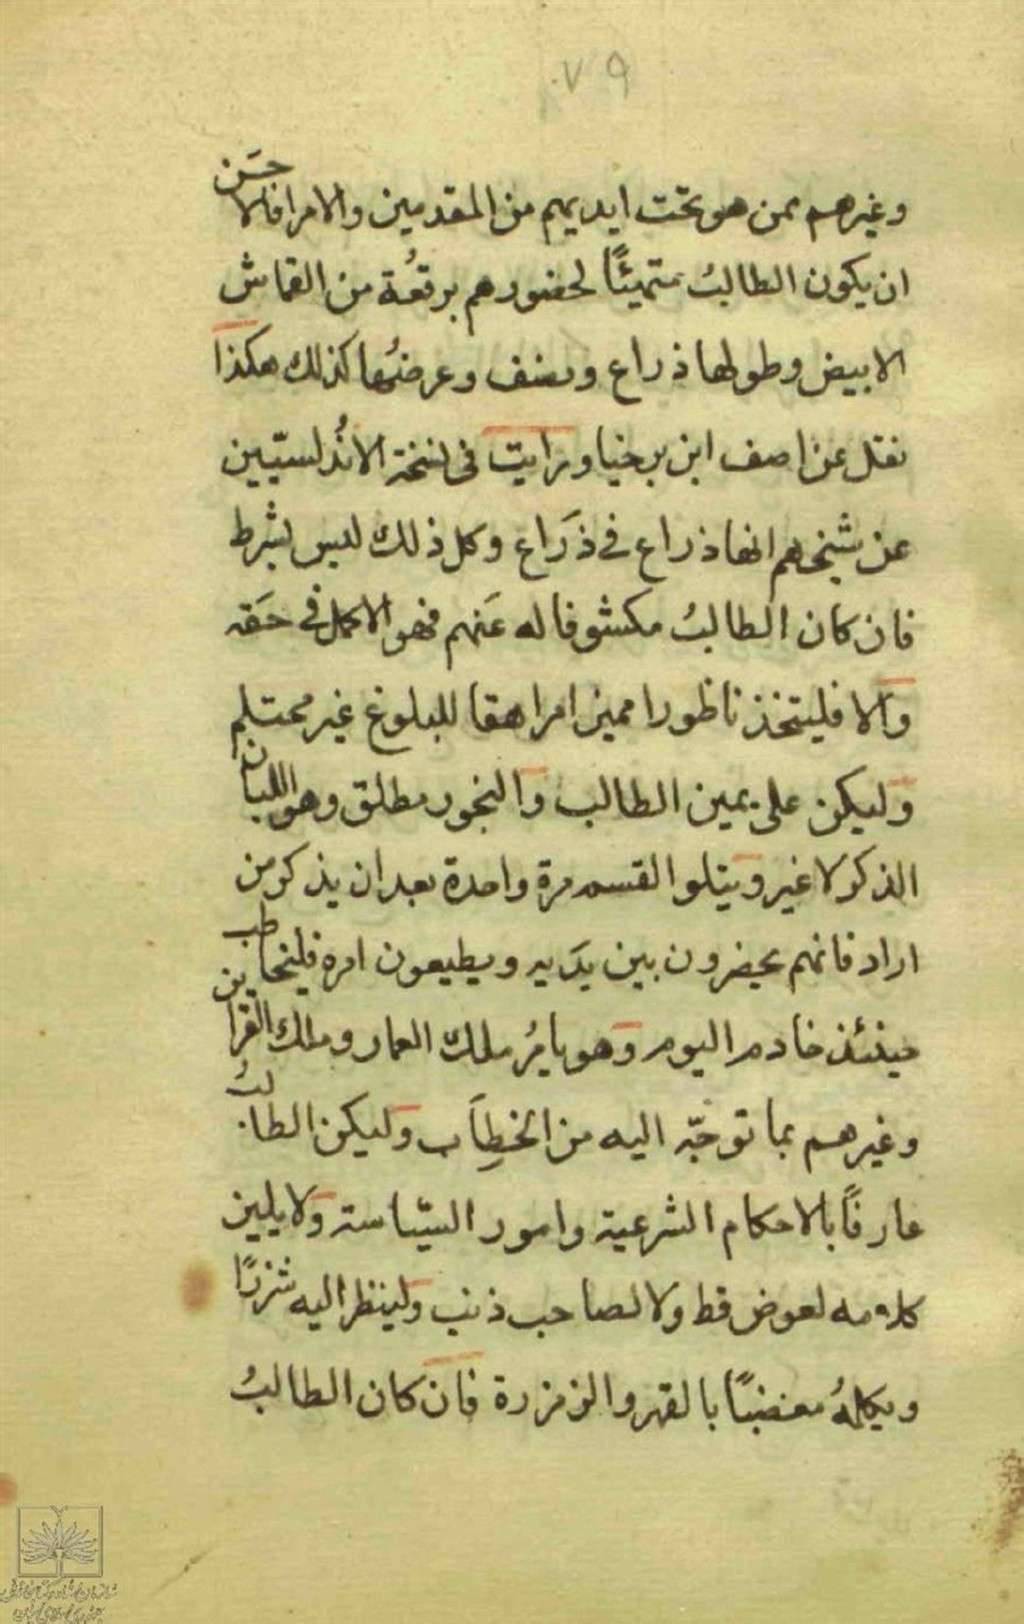 ٧٩
وغيرهم ممن هو تحت ايديهم من المقدمين والامرا فالاحسن
ان يكون الطالبُ متهيئًا لحضورهم برقعُة من القماش
الابيض وطولها ذراع ونصف وعرضُها كذلك هكذا
نقل عن اصف ابن برخيا ورايت فى نسخة الاندُلسيّين
عن شيخهم انها ذراع فى ذَراع وكل ذلك ليس بشرط
فان كان الطالبُ مكشوفا له عَنهم فهو الاكمل فى حَقه
والا فليتخذ ناظورا مميزا مراهقا للبلوغ غير محتلم
وليكن على يمين الطالب والبخور مطلق وهو اللبان
الذكر لا غير ويتلوا القسم مرة واحدة بعد ان يذكر من
اراد فانهم يحضرون بين يدَيه ويطيعون امره فليخاطب
حينئذ خادم اليوم وهو يامرُ ملك العمار وملك القرانين
وغيرهم بما توجّه اليه من الخطِاَب وليكن الطالبُ
عارفًا بالاحكام الشرعية وامور السّياسة ولا يلين
كلامه لعوض قط ولا لصاحب ذنب ولينظر اليه شزرًا
ويكلمهُ مغضبًا بالقهر والزمزرة فان كان الطالبُ